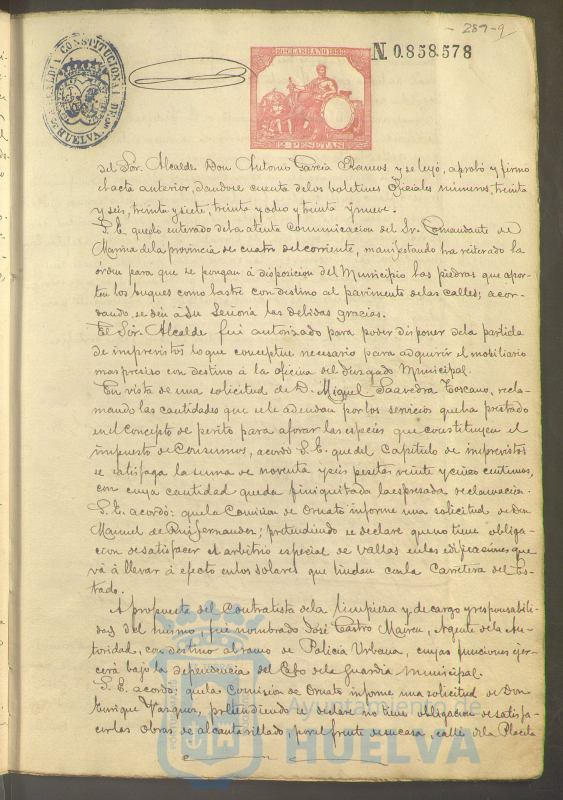 - 289-9
ALCALDIA CONSTITUCIONAL DE HUELVA
10º CLASE AÑO 1888
N. 0.858.578
2 PESETAS
del Sór. Alcalde Don Antonio García Ramos, y se leyó, aprobó y firmó
el acta anterior, dandose cuenta delos boletines oficiales números, treinta
y seis, treinta y siete, treinta y ocho y treinta y nueve.
S. E. quedó enterado dela atenta comunicacion del Sr. Comandante de
Marina dela provincia de cuatro del corriente, manifestando ha reiterado la
órden para que se pongan á disposicion del Municipio las piedras que apor-
ten los buques como lastre con destino al pavimento delas calles; acor-
dando, se dén á Su Señoria las debidas gracias.
El Sór. Alcalde fué autorizado para poder disponer dela partida
de imprevistos lo que conceptue necesario para adquirir el mobiliario
mas preciso con destino á la oficina del Juzgado Municipal.
En vista de una solicitud de D. Miguel Saavedra Toscano, recla-
mando las cantidades que sele adeudan por los servicios que ha prestado
en el concepto de perito para aforar las especies que constituyen el
impuesto de Consumos, acordó S. E. que del Capitulo de imprevistos
se satisfaga la suma de noventa y seis pesetas veinte y cinco centimos,
con cuya cantidad queda finiquitada la espresada reclamacion.
S. E. acordó: que la Comision de Ornato informe una solicitud de Don
Manuel de Ruifernandez; pretendiendo se declare que no tiene obliga-
cion de satisfacer el arbitrio especial de Vallas en las edificaciones que
vá á llevar á efecto en los solares que lindan con la Carretera del Es-
tado.
A propuesta del Contratista dela limpieza y de cargo y responsabili-
dad del mismo fué nombrado José Castro Mairen, Agente dela Au-
toridad, con destino al ramo de Policia Urbana, cuyas funciones ejer-
cerá bajo la dependencia del Cabo dela Guardia Municipal.
S. E. acordó: que la Comision de Ornato informe una solicitud de Don
Enrique Vazquez, pretendiendo se declare no tiene obligacion de satisfa-
cer las obras de alcantarillado, por el frente de su casa, calle dela Placeta
Ayuntamiento de
HUELVA